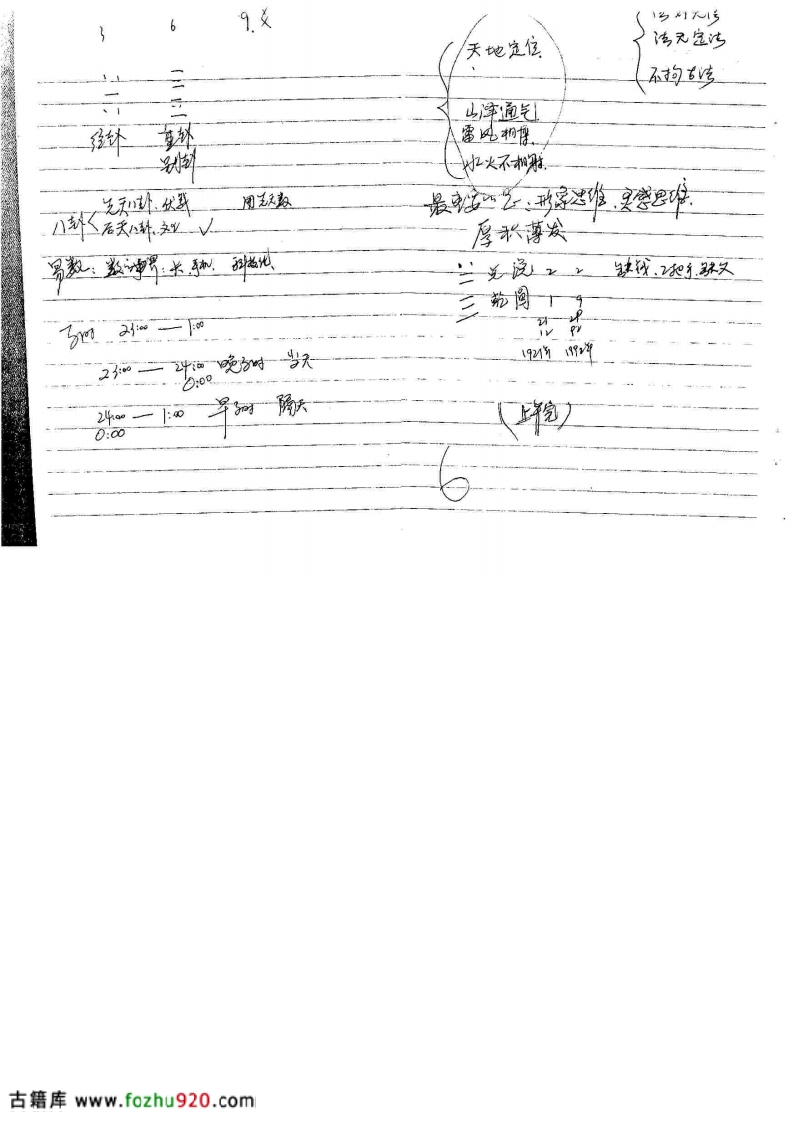 3 6 9.爻
经卦 重卦
别卦
八卦 先天八卦.伏羲 用先天数
后天八卦.文王 ✓
易数：数
子时 23:00 — 1:00
23:00 — 24:00 晚子时 当天
0:00
24:00 — 1:00 早子时 隔天
0:00
天地定位
山泽通气
雷风相薄
水火不相射
法无定法
不拘古法
最 : 形象思维.灵感思维.
厚积薄发
☱ 兑 2 2
☰ 乾 圆 1 9
21 29
12 92
1921年 1992年
(上午完)
6
古籍库 www.fozhu920.com